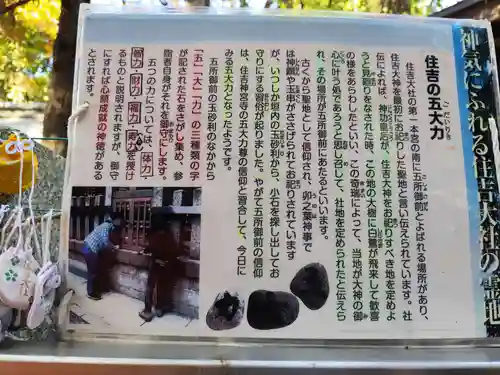 神気にふれる聖地
住吉の五大力
ごだいりき
住吉大社の第一本宮の南に五所御前とよばれる場所があり、
住吉大神を最初にお祀りした聖地と言い伝えられています。社
伝によれば、神功皇后が、住吉大神をお祀りすべき地を定めよ
うと見廻りをなされた時、この地の大樹に白鷺が飛来して歓喜
の様をあらわしたといい、この奇瑞によって、当地が大神の御
心に叶う処であろうと占し窺して、社地を定められたと伝えら
れ、その場所が五所御前にあたるといいます。
古くから聖地として信仰され、卯之葉神事で
は神饌や玉串がささげられてお祀りされています
が、いつしか垣内の玉砂利から、小石を探し出してお
守りにする習俗が起りました。やがて五所御前の信仰
は、住吉神宮寺の五大力尊の信仰と習合して、今日に
みる五大力となったようです。
五所御前の玉砂利のなかから
「五」「大」「力」の三種類の字
が記された石をさがし集め、参
詣者自身がそれを御守にします。
五つの力については、「体力・
智力・財力・福力・寿力」を授け
るものと説明されますが、御守
にすれば心願成就の神徳がある
とされます。